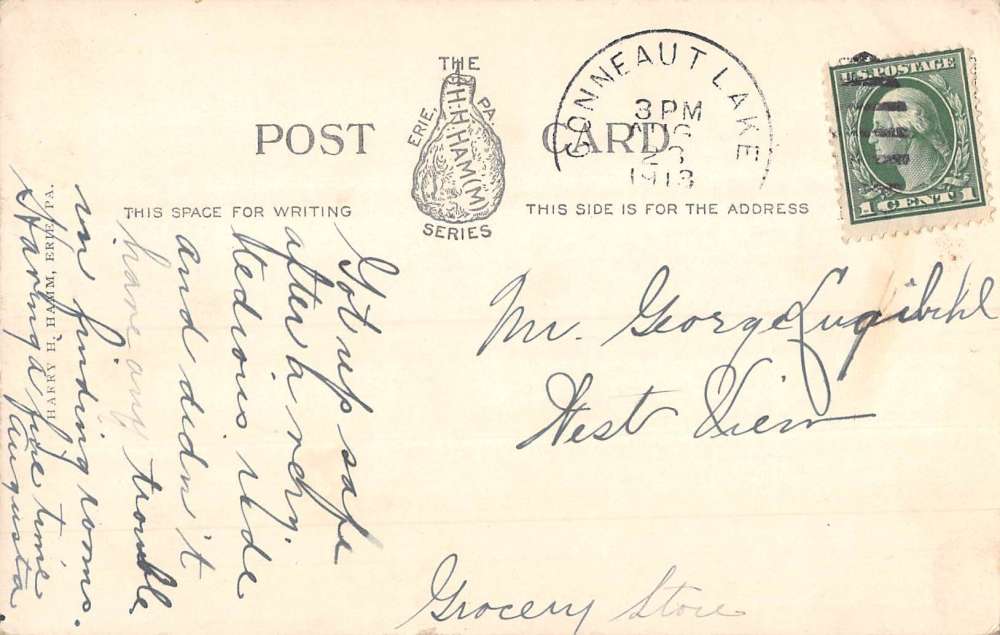 THE
ERIE, PA
H.H.HAM(M
SERIES
POST CARD
THIS SPACE FOR WRITING
THIS SIDE IS FOR THE ADDRESS
CONNEAUT LAKE
3 PM
AUG
1913
U.S. POSTAGE
1 CENT 1
Got up safe
after a very
tedious ride
and didn't
have any trouble
in finding rooms.
Having a fine time
Augusta.
HARRY H. HAMM, ERIE, PA.
Mr. George Lugibihl
West View
Grocery Store